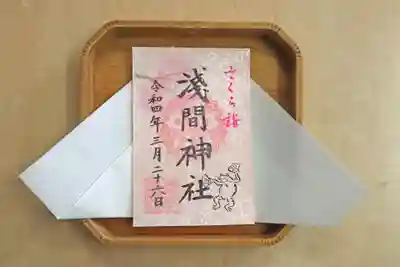 さくら詣
浅間神社
令和四年三月二十六日